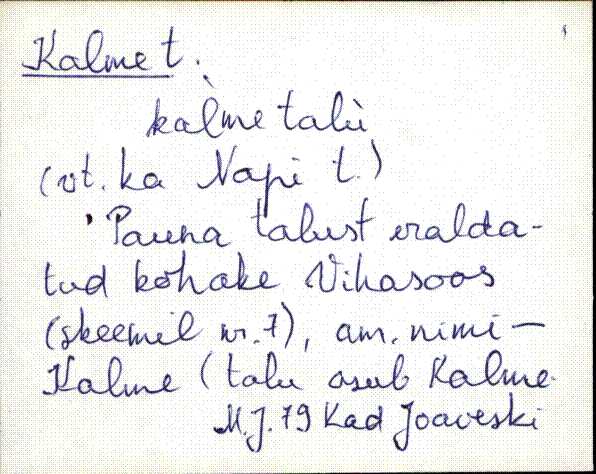 Kalme t.
kàlme talù
(vt. ka Napi t.)
'Pauna talust eralda-
tud kohake Vihasoos
(skeemil nr. 7), am. nimi —
Kalme (talu asub Kalme
M.J. 79 Kad Joaveski